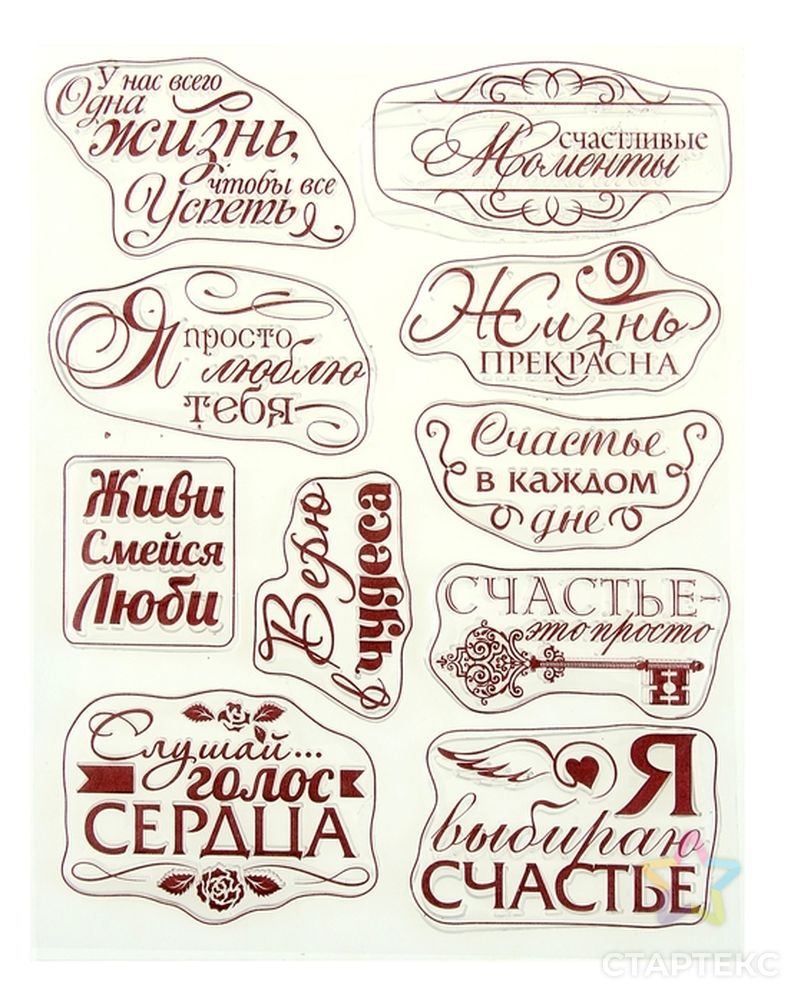 У нас всего
Одна
жизнь,
чтобы все
Успеть
счастливые
Моменты
Я просто
люблю
тебя
Жизнь
ПРЕКРАСНА
Счастье
в каждом
дне
Живи
Смейся
Люби
Верю
в чудеса
СЧАСТЬЕ-
это просто
Слушай...
голос
СЕРДЦА
Я
выбираю
СЧАСТЬЕ
СТАРТЕКС